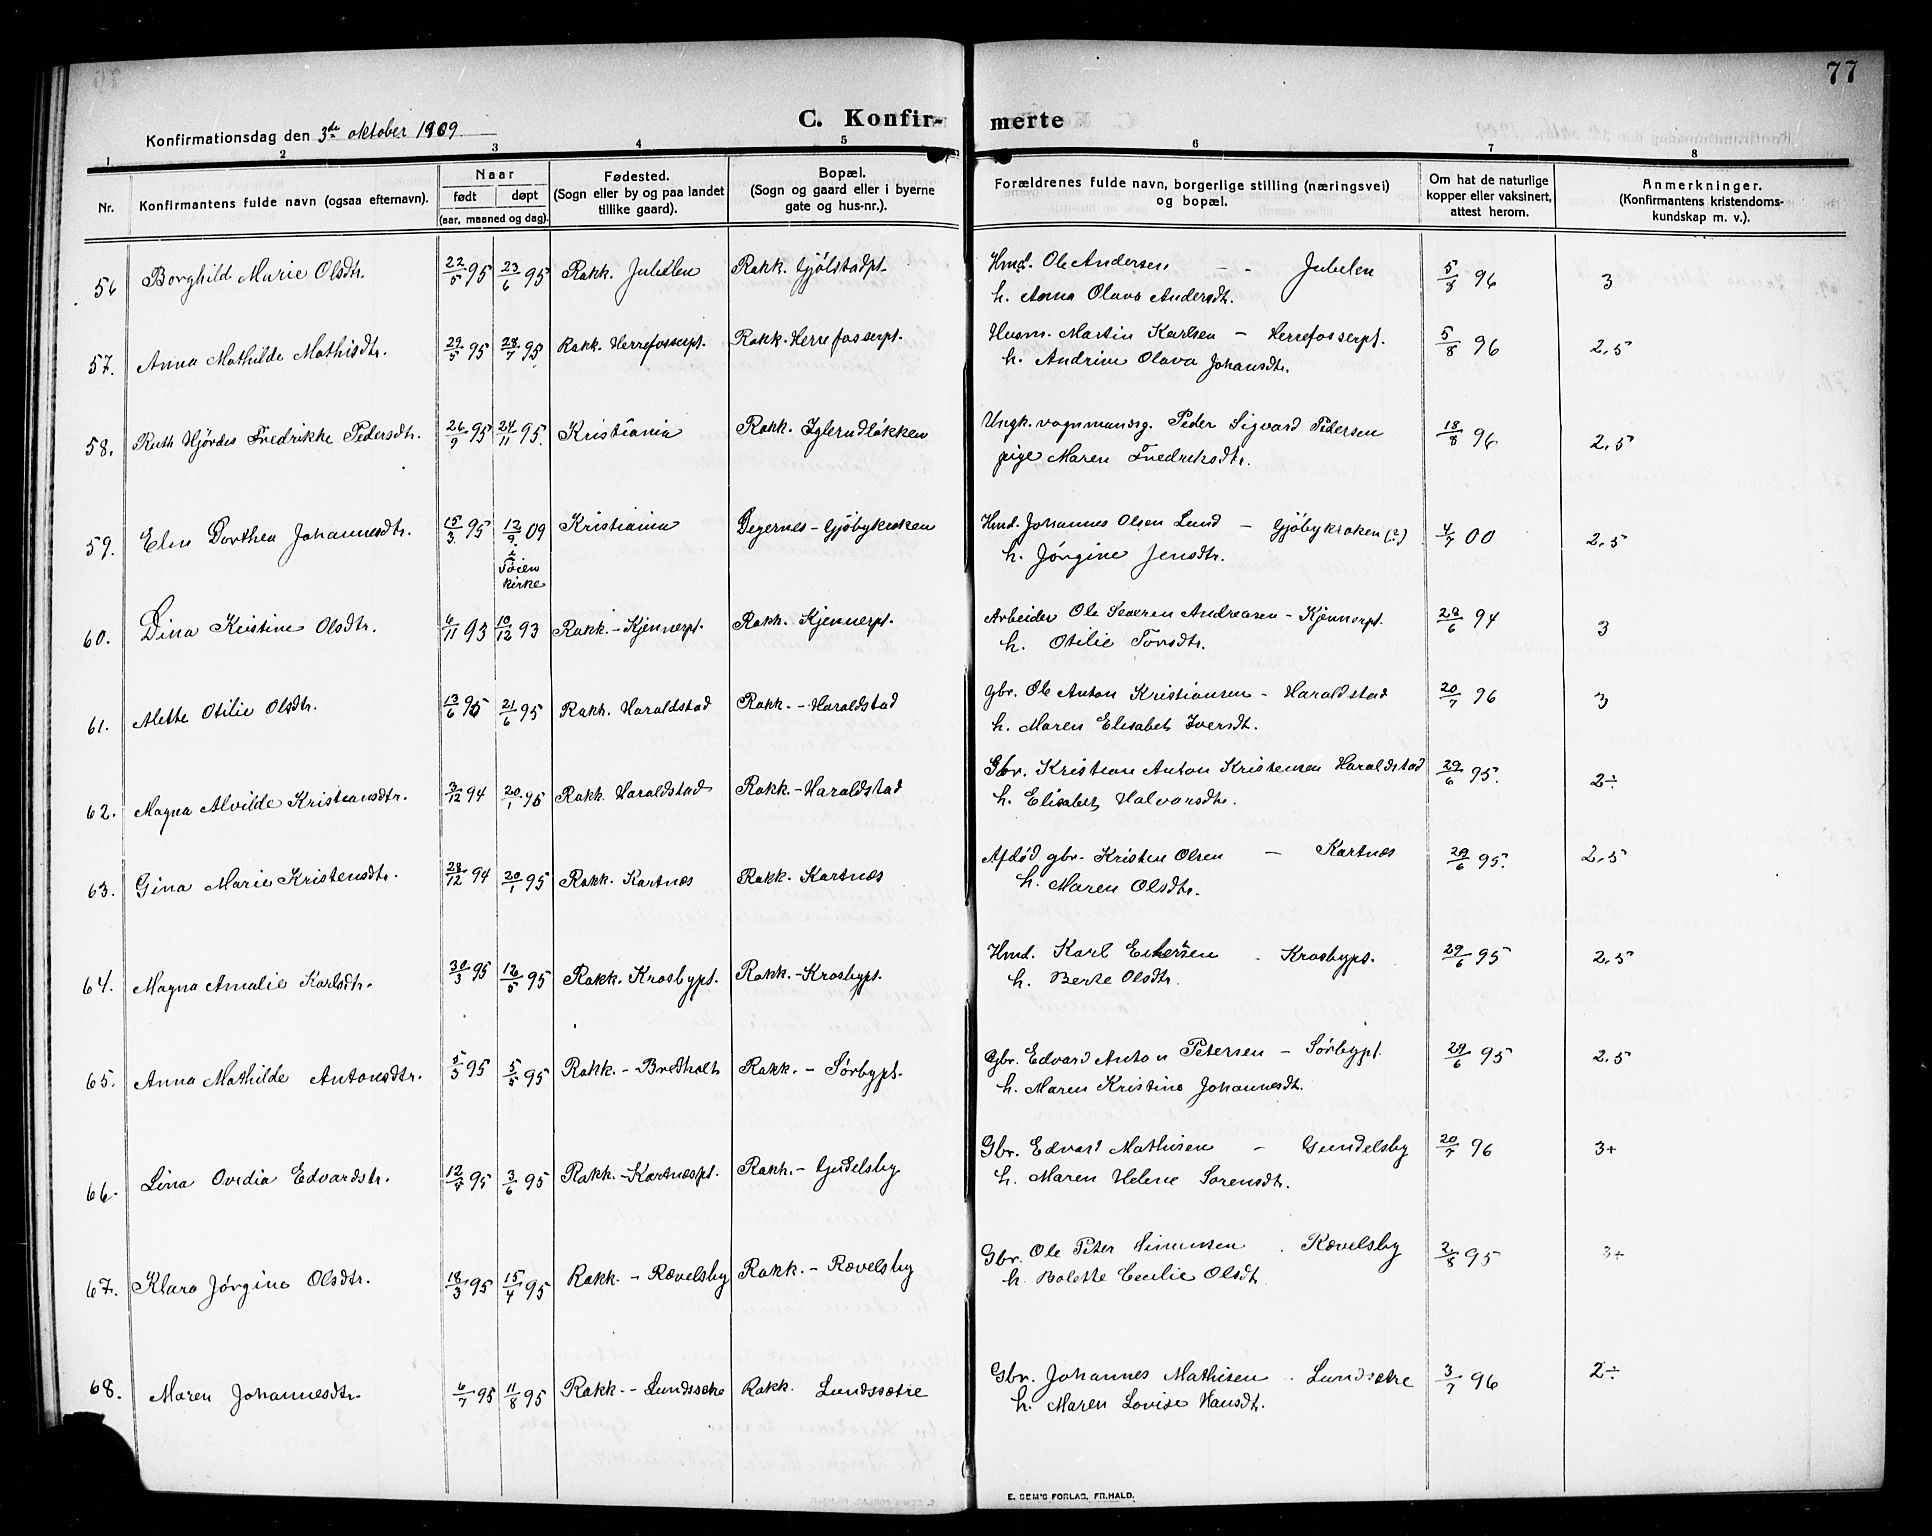 77
C. Konfirmerte
Konfirmationsdag den 3de oktober 1909
1 2 3 4 5 6 7 8
Nr.
Konfirmantens fulde navn (ogsaa efternavn).
Naar
født døpt
(aar, maaned og dag).
Fødested.
(Sogn eller by og paa landet
tillike gaard).
Bopæl.
(Sogn og gaard eller i byerne
gate og hus-nr.).
Forældrenes fulde navn, borgerlige stilling (næringsvei)
og bopæl.
Om hat de naturlige
kopper eller vaksinert,
attest herom.
Anmerkninger.
(Konfirmantens kristendoms-
kundskap m. v.).
56 Borghild Marie Olsdtr. 22/5 95 23/6 95 Rakk. Jubelen Rakk. Gjølstadpt. Hmd. Ole Andersen - - Jubelen 5/8 96 3
h. Anna Olava Andersdt.
57. Anna Mathilde Mathisdtr. 29/5 95 28/7 95. Rakk. Herrefosserpt. Rakk. Herrefosserpt. Husm. Martin Karlsen - Herrefosserpt. 5/8 96 2,5
h. Andrine Olava Johansdtr.
58. Ruth Hjørdes Fredrikke Pedersdtr. 26/9 95 24/11 95. Kristiania Rakk. Iglerudløkken Ungk. vognmandsg. Peder Sigvard Pedersen 18/8 96 2,5
pige Maren Fredriksdtr.
59. Elen Dorthea Johannesdtr. 15/3 95 12/9 09 Kristiania Degernes - Gjøbykroken Hmd. Johannes Olsen Lund - Gjøbykroken (?) 4/7 00 2,5
i
Tøien
kirke
h. Jørgine Jensdtr.
60. Dina Kristine Olsdtr. 6/11 93 10/12 93 Rakk. - Kjennerpt. Rakk. Kjennerpt. Arbeider Ole Severen Andreasen - Kjennerpt. 28/6 94 3
h. Otilie Torsdtr.
61. Alette Otilie Olsdtr. 13/6 95 21/6 95 Rakk. Haraldstad Rakk. - Haraldstad Gbr. Ole Anton Kristiansen - Haraldstad 20/7 96 3
h. Maren Elisabet Iversdt.
62. Magna Alvilde Kristiansdtr. 3/12 94 20/1 95 Rakk. Haraldstad Rakk. - Haraldstad Gbr. Kristian Anton Kristensen Haraldstad 29/6 95. 2÷
h. Elisabet Halvorsdtr.
63. Gina Marie Kristensdtr. 28/12 94 20/1 95 Rakk. Kartnæs Rakk. Kartnæs Afdød gbr. Kristen Olsen - Kartnæs 29/6 95. 2,5
h. Maren Olsdtr.
64. Magna Amalie Karlsdtr. 30/3 95 12/5 95 Rakk. Krosbypt. Rakk. - Krosbypt. Hmd. Karl - Krosbypt. 29/6 95 2,5
h. Berte Olsdtr.
65. Anna Mathilde Antonsdtr. 5/3 95 5/5 95 Rakk. - Bredholt Rakk. - Sørbypt. Gbr. Edvard Anton Petersen - Sørbypt. 29/6 95 2,5
h. Maren Kristine Johannesdtr.
66. Lina Ovidia Edvardstr. 12/4 95 3/6 95 Rakk. - Kartnæspt. Rakk. - Gudelsby Gbr. Edvard Mathisen - Gundelsby 20/7 96 3+
h. Maren Helene Sorensdtr.
67. Klara Jørgine Olsdtr. 18/3 95 15/4 95 Rakk. - Rævelsby Rakk. - Rævelsby Gbr. Ole Peter Simensen - Rævelsby 2/8 95 3+
h. Bolette Cecilie Olsdt.
68. Maren Johannesdtr. 6/7 95 11/8 95 Rakk. - Lundssætre Rakk. Lundssætre Gbr. Johannes Mathisen - Lundsætre 3/7 96 2÷
h. Maren Lovise Hansdtr.
E. SEM'S FORLAG, FR.HALD.